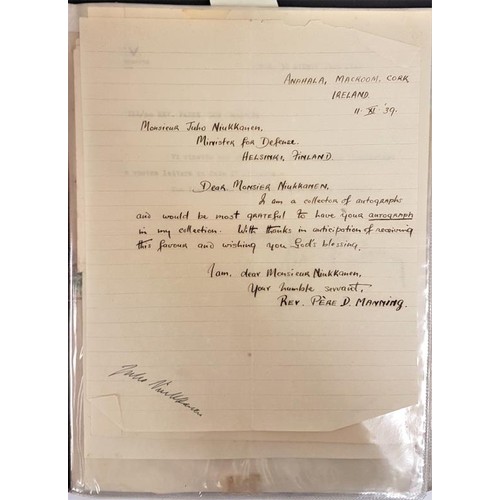 Anahala, Macroom, Cork
Ireland.
11. XI. '39.
Monsieur Juho Niukkanen,
Minister for Defense.
Helsinki, Finland.
Dear Monsier Niukkanen,
I am a collector of autographs
and would be most grateful to have your autograph
in my collection. With thanks in anticipation of receiving
this favour and wishing you God's blessing.
I am, dear Monsieur Niukkanen,
Your humble servant,
Rev. Père D. Manning.
Juho Niukkanen